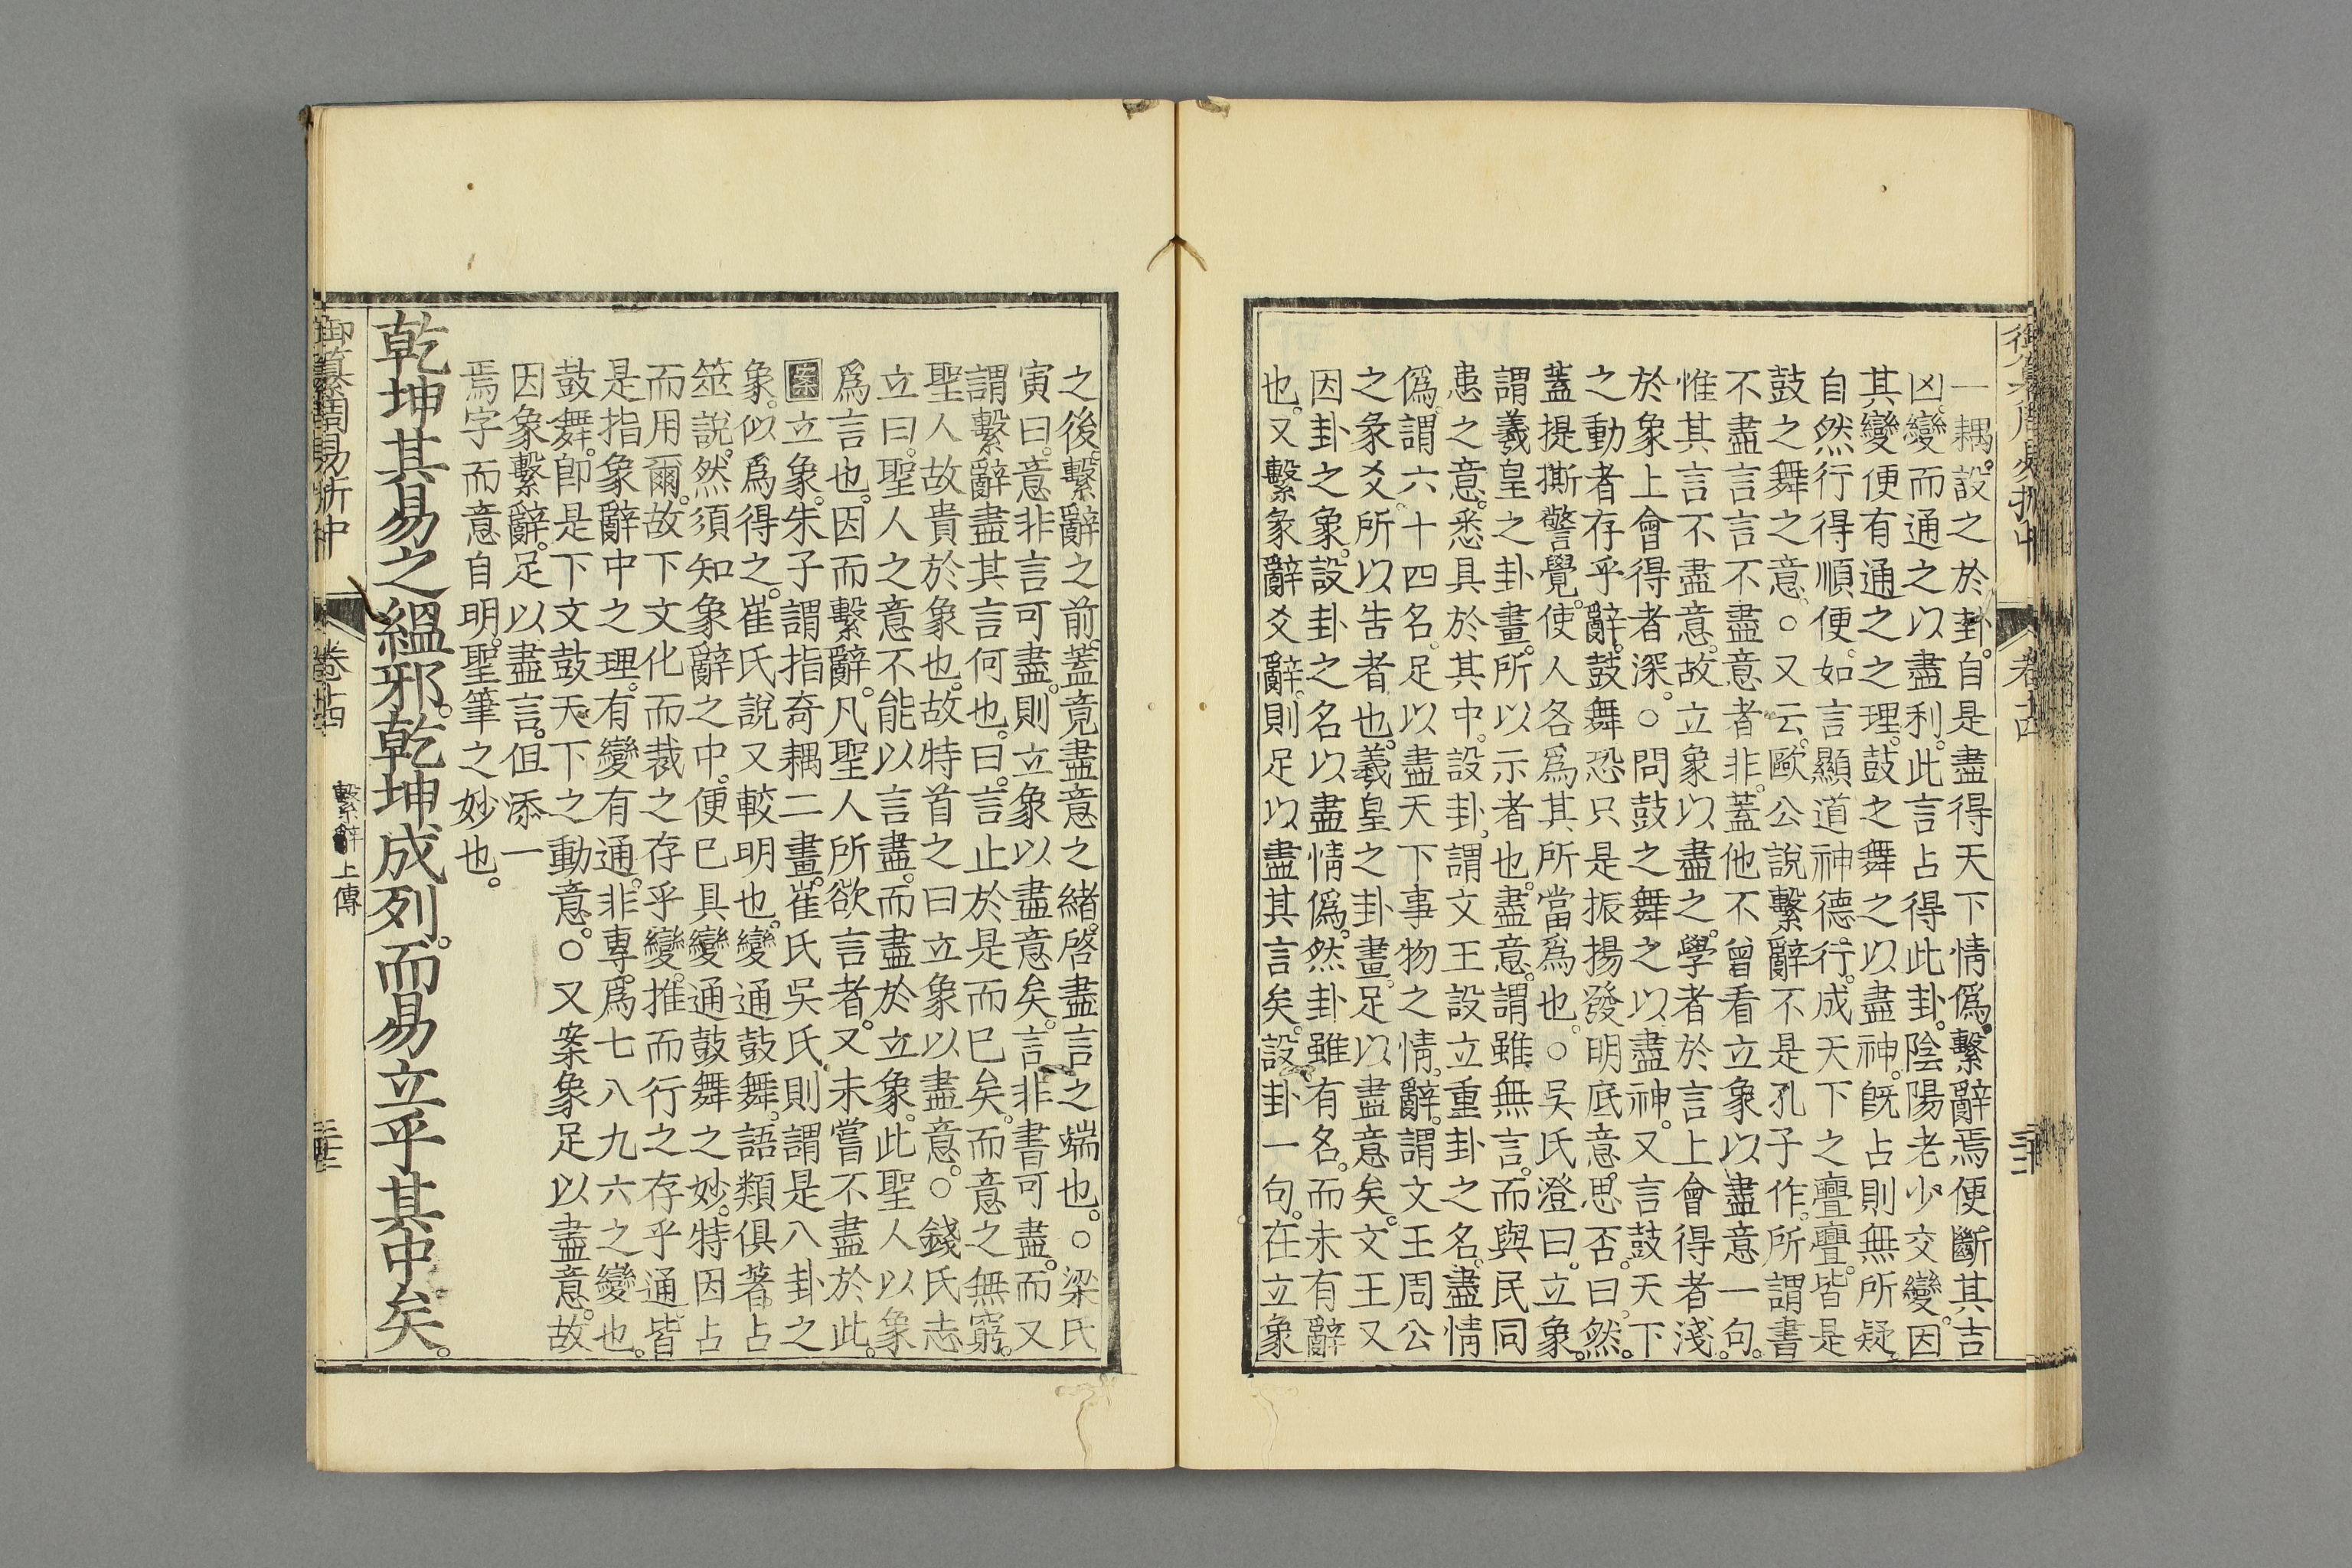 一耦。設之於卦。自是盡得天下情僞。繫辭焉便斷其吉
凶。變而通之以盡利。此言占得此卦。陰陽老少交變。因
其變便有通之之理。鼓之舞之以盡神。旣占則無所疑。
自然行得順便。如言顯道神德行。成天下之亹亹。皆是
鼓之舞之意。○又云。歐公說繫辭不是孔子作。所謂書
不盡言言不盡意者非。蓋他不曾看立象以盡意一句。
惟其言不盡意。故立象以盡之。學者於言上會得者淺。
於象上會得者深。○問鼓之舞之以盡神。又言鼓天下
之動者存乎辭。鼓舞恐只是振揚發明底意。思否。曰。然。
蓋提撕警覺。使人各爲其所當爲也。○吳氏澄曰。立象。
謂羲皇之卦畫。所以示者也。盡意。謂雖無言。而與民同
患之意。悉具於其中。設卦。謂文王設立重卦之名。盡情
僞。謂六十四名。足以盡天下事物之情。辭。謂文王周公
之彖爻。所以告者也。羲皇之卦畫。足以盡意矣。文王又
因卦之象。設卦之名。以盡情僞。然卦雖有名。而未有辭
也。又繫彖辭爻辭。則足以盡其言矣。設卦一句。在立象
御纂周易折中
卷十四
之後。繫辭之前。蓋竟盡意之緒。啓盡言之端也。○梁氏
寅曰。意非言可盡。則立象以盡意矣。言非書可盡。而又
謂繫辭盡其言何也。曰。言止於是而已矣。而意之無窮。
聖人故貴於象也。故特首之曰立象以盡意。○錢氏志
立曰。聖人之意不能以言盡。而盡於立象。此聖人以象
爲言也。因而繫辭。凡聖人所欲言者。又未嘗不盡於此。
案立象。朱子謂指奇耦二畫。崔氏吳氏。則謂是八卦之
象。似爲得之。崔氏說又較明也。變通鼓舞。語類俱著占
筮說。然須知象辭之中。便已具變通鼓舞之妙。特因占
而用爾。故下文化而裁之存乎變。推而行之存乎通。皆
是指象辭中之理。有變有通。非專爲七八九六之變也。
鼓舞。卽是下文鼓天下之動意。○又案象足以盡意。故
因象繫辭。足以盡言。但添一
焉字而意自明。聖筆之妙也。
乾坤其易之縕邪。乾坤成列。而易立乎其中矣。
御纂周易折中
卷十四
繫辭上傳